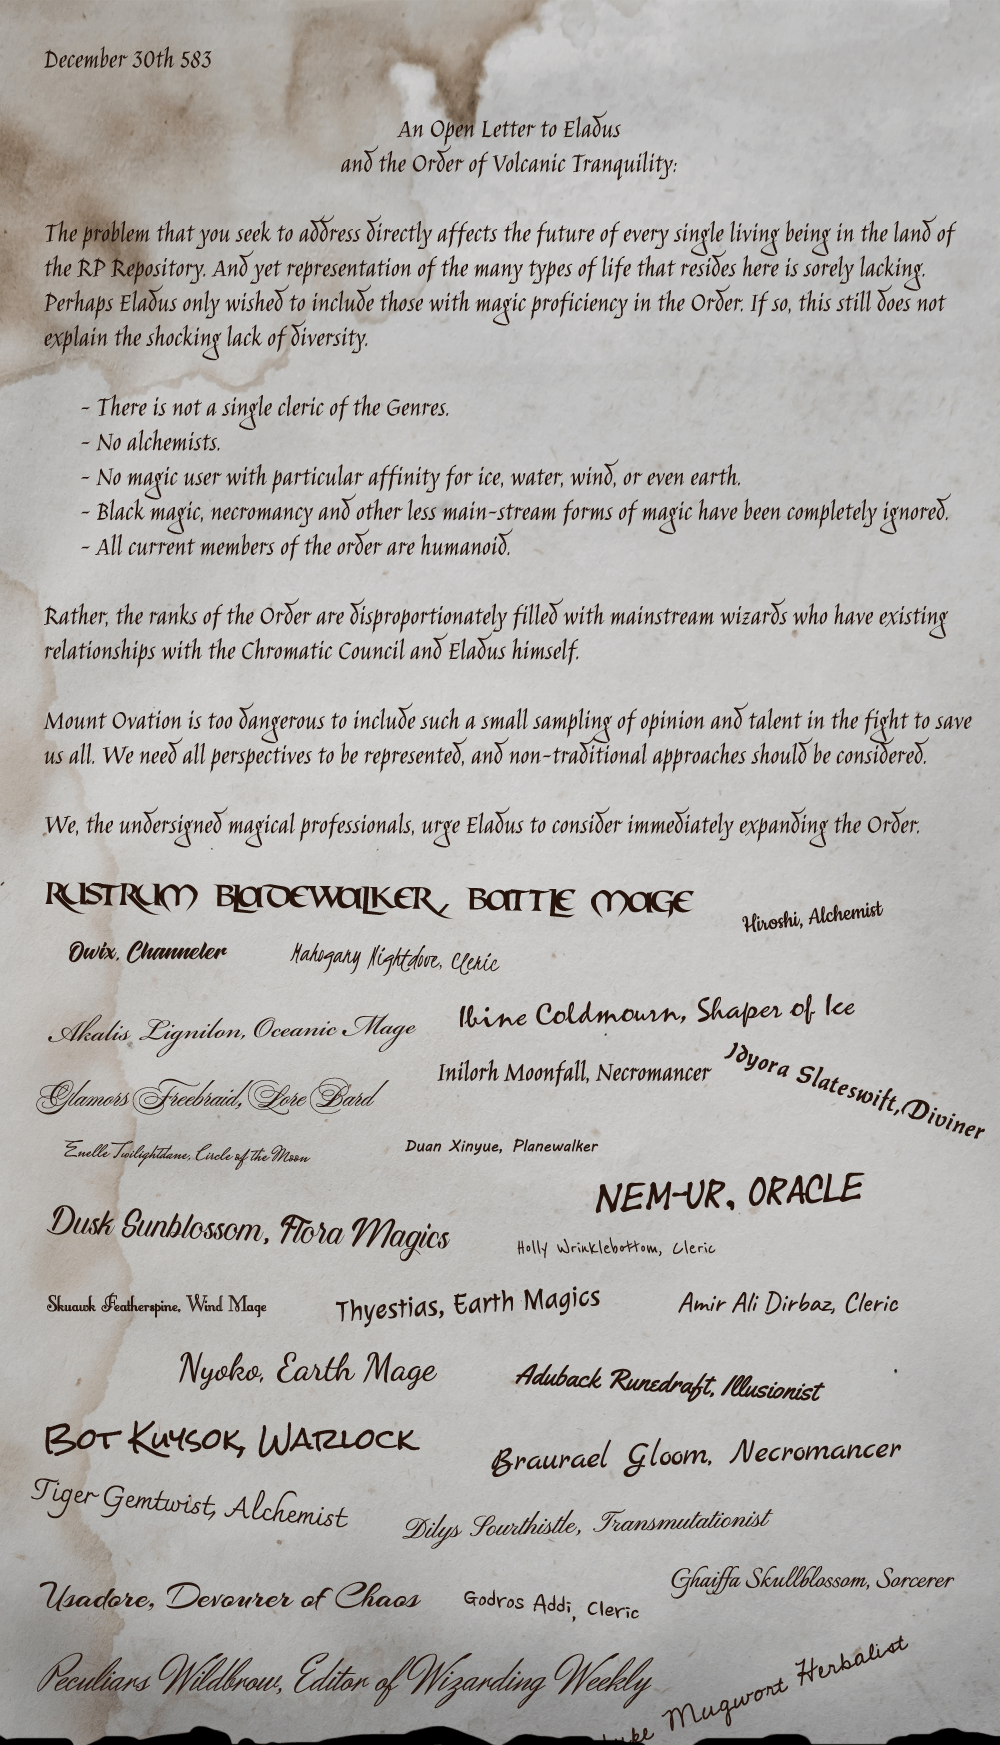 December 30th 583
An Open Letter to Eladus
and the Order of Volcanic Tranquility:
The problem that you seek to address directly affects the future of every single living being in the land of
the RP Repository. And yet representation of the many types of life that resides here is sorely lacking.
Perhaps Eladus only wished to include those with magic proficiency in the Order. If so, this still does not
explain the shocking lack of diversity.
- There is not a single cleric of the Genres.
- No alchemists.
- No magic user with particular affinity for ice, water, wind, or even earth.
- Black magic, necromancy and other less main-stream forms of magic have been completely ignored.
- All current members of the order are humanoid.
Rather, the ranks of the Order are disproportionately filled with mainstream wizards who have existing
relationships with the Chromatic Council and Eladus himself.
Mount Ovation is too dangerous to include such a small sampling of opinion and talent in the fight to save
us all. We need all perspectives to be represented, and non-traditional approaches should be considered.
We, the undersigned magical professionals, urge Eladus to consider immediately expanding the Order.
Rustrum Bladewalker, Battle Mage
Hiroshi, Alchemist
Owix, Channeler
Mahogany Nightdove, Cleric
Akalis Lignilon, Oceanic Mage
Ibine Coldmourn, Shaper of Ice
Inilorh Moonfall, Necromancer
Idyora Slateswift, Diviner
Glamors Freebraid, Lore Bard
Enelle Twilightdane, Circle of the Moon
Duan Xinyue, Planewalker
NEM-UR, ORACLE
Dusk Sunblossom, Flora Magics
Holly Wrinklebottom, Cleric
Skuawk Featherspine, Wind Mage
Thyestias, Earth Magics
Amir Ali Dirbaz, Cleric
Nyoko, Earth Mage
Aduback Runedraft, Illusionist
Bot Kuysok, Warlock
Braurael Gloom, Necromancer
Tiger Gemtwist, Alchemist
Dilys Sourthistle, Transmutationist
Ghaiffa Skullblossom, Sorcerer
Usadore, Devourer of Chaos
Godros Addi, Cleric
Peculiars Wildbrow, Editor of Wizarding Weekly
Mugwort Herbalist